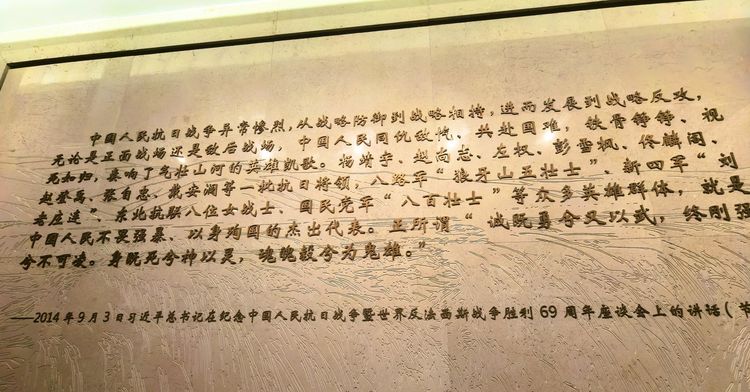 中国人民抗日战争异常惨烈,从战略防御到战略相持,进而发展到战略反攻,
无论是正面战场还是敌后战场,中国人民同仇敌忾、共赴国难,铁骨铮铮、视
死如归,奏响了气壮山河的英雄凯歌。杨靖宇、赵尚志、左权、彭雪枫、佟麟阁、
赵登禹、张自忠、戴安澜等一批抗日将领,八路军“狼牙山五壮士”、新四军“刘
老庄连”、东北抗联八位女战士、国民党军“八百壮士”等众多英雄群体,就是
中国人民不畏强暴、以身殉国的杰出代表。正所谓“诚既勇兮又以武,终刚强
兮不可凌。身既死兮神以灵,魂魄毅兮为鬼雄。”
——2014年9月3日习近平总书记在纪念中国人民抗日战争暨世界反法西斯战争胜利69周年座谈会上的讲话(节